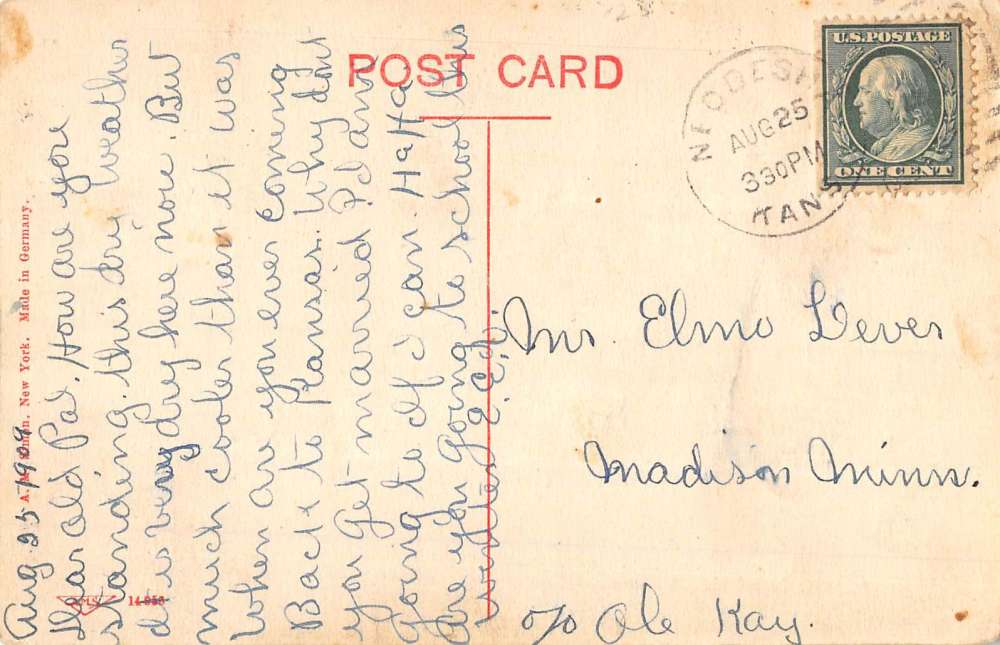 POST CARD
U.S. POSTAGE
ONE CENT
AUG 25
330 PM
A. M. Simon. New York. Made in Germany.
Aug 25 1909
Dear old Pal. How are you
standing this dry weather
it is very dry here now. But
much cooler than it was
When are you ever coming
Back to Kansas. Why dont
you get married I'd am
going to if I can. HaHa
Are you going to school this
winter
Mr. Elmo Dever
Madison Minn.
c/o Ole Kay.